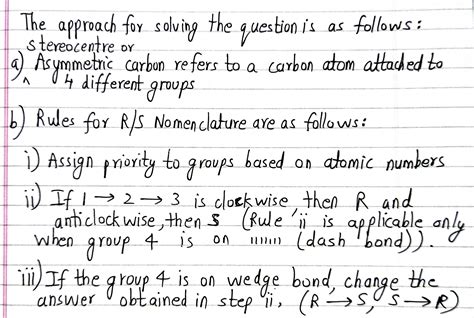 The approach for solving the question is as follows:
stereocentre or
a) ^ Asymmetric carbon refers to a carbon atom attached to
4 different groups
b) Rules for R/S Nomenclature are as follows:
i) Assign priority to groups based on atomic numbers
ii) If 1 → 2 → 3 is clockwise, then R and
anticlockwise, then S (Rule 'ii is applicable only
when group 4 is on ıııııı (dash bond)).
iii) If the group 4 is on wedge bond, change the
answer obtained in step ii, (R → S, S → R)